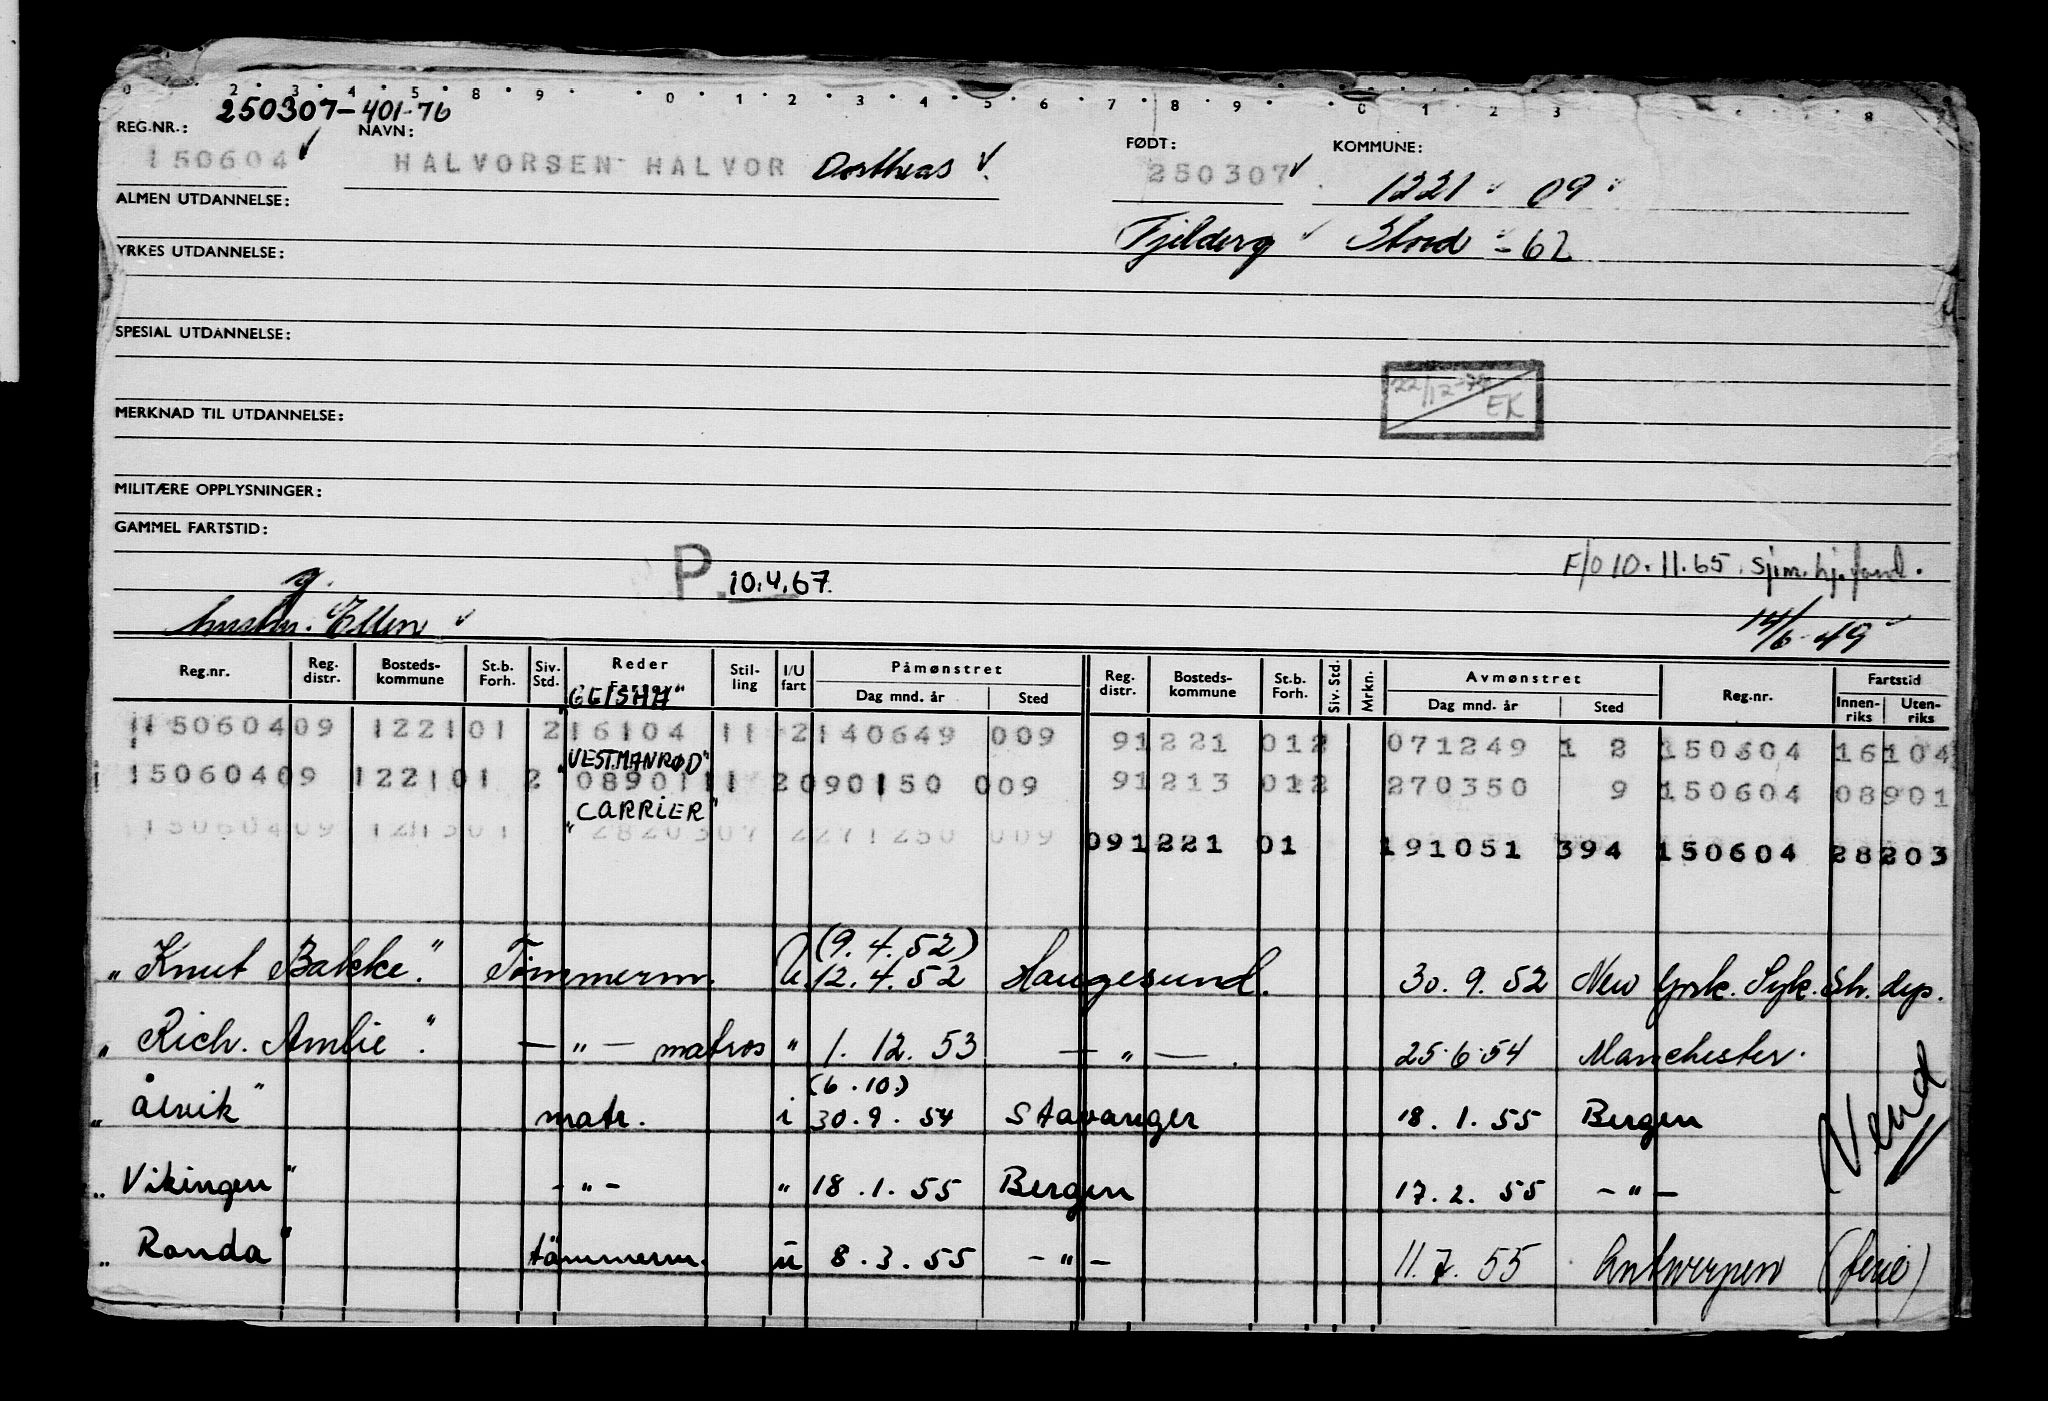 0 2 3 4 5 8 9 0 1 2 3 4 5 6 7 8 9 0 1 2 3 8
250307-401-76
REG.NR.: NAVN: FØDT: KOMMUNE:
150604 HALVORSEN HALVOR Dortheas 250307 1221 09
ALMEN UTDANNELSE:
Fjelberg Stord - 62
YRKES UTDANNELSE:
SPESIAL UTDANNELSE:
22/12-
EK
MERKNAD TIL UTDANNELSE:
MILITÆRE OPPLYSNINGER:
GAMMEL FARTSTID:
P. 10.4.67. F/O 10.11.65. sjm. hj.
g.
hustru. Ellen 14/6-49
Reg.nr. Reg. distr. Bosteds-kommune St.b. Forh. Siv. Std. Reder Stil-ling I/U fart Påmønstret Dag mnd. år Sted Reg. distr. Bosteds-kommune St.b. Forh. Siv. Std. Mrkn. Avmønstret Dag mnd. år Sted Reg.nr. Fartstid Innen-riks Uten-riks
"GEISHA"
15060409 122101 216104 11 2140649 009 91221 012 071249 1 2 150604 16104
"VESTMANRØD"
15060409 122101 2 0890111 2090150 009 91213 012 270350 9 150604 08901
"CARRIER"
15060409 121301 2820307 2271250 009 091221 01 191051 394 150604 28203
(9.4.52)
"Knut Bakke." Tømmerm. U. 12.4.52 Haugesund. 30.9.52 New York. Syk. Sh. dep.
"Rich. Amlie". — " — matros " 1.12.53 — " —. 25.6.54 Manchester.
(6.10.)
"Ålvik" matr. i 30.9.54 Stavanger 18.1.55 Bergen
Vend
"Vikingen" - " - " 18.1.55 Bergen 17.2.55 - " -
"Ronda" tömmerm. u 8.3.55 - " - 11.7.55 Antwerpen (ferie)